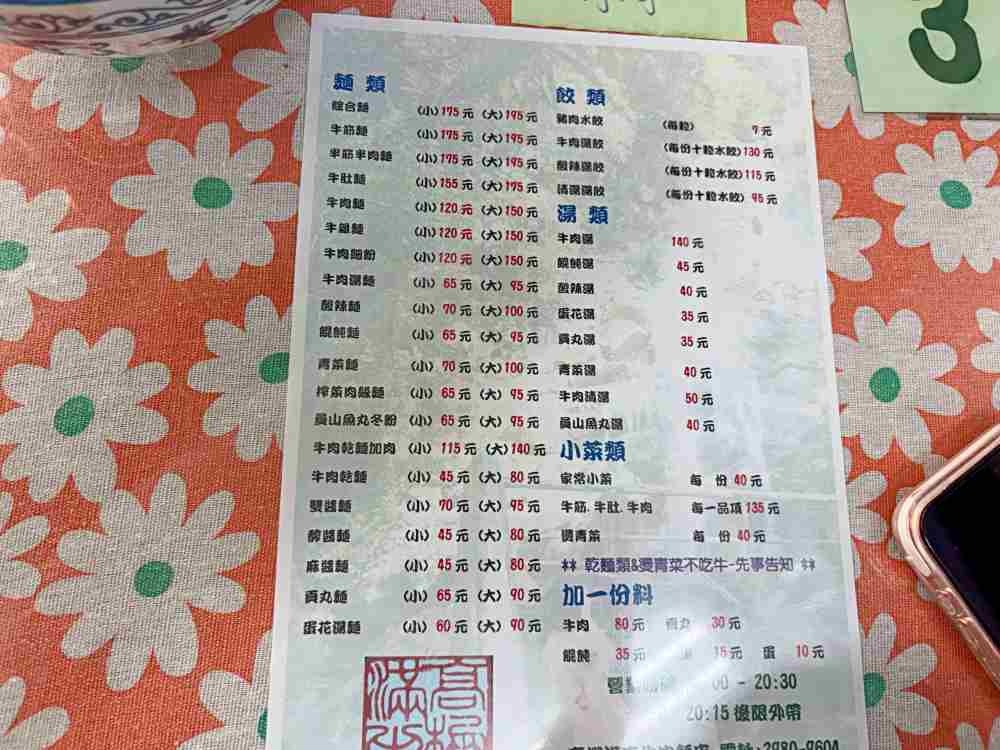 3
麵 類
綜合麵 (小)175元 (大)195元
牛筋麵 (小)175元 (大)195元
半筋半肉麵 (小)175元 (大)195元
牛肚麵 (小)155元 (大)175元
牛肉麵 (小)120元 (大)150元
牛雜麵 (小)120元 (大)150元
牛肉細粉 (小)120元 (大)150元
牛肉湯麵 (小) 65元 (大) 95元
酸辣麵 (小) 70元 (大)100元
餛飩麵 (小) 65元 (大) 95元
青菜麵 (小) 70元 (大)100元
榨菜肉絲麵 (小) 65元 (大) 95元
員山魚丸冬粉 (小) 65元 (大) 95元
牛肉乾麵加肉 (小) 115元 (大)140元
牛肉乾麵 (小) 45元 (大) 80元
雙醬麵 (小) 70元 (大) 95元
醡醬麵 (小) 45元 (大) 80元
麻醬麵 (小) 45元 (大) 80元
貢丸麵 (小) 65元 (大) 90元
蛋花湯麵 (小) 60元 (大) 90元
餃 類
豬肉水餃 (每粒) 7元
牛肉湯餃 (每份十粒水餃)130元
酸辣湯餃 (每份十粒水餃)115元
清湯湯餃 (每份十粒水餃) 95元
湯 類
牛肉湯 140元
餛飩湯 45元
酸辣湯 40元
蛋花湯 35元
貢丸湯 35元
青菜湯 40元
牛肉清湯 50元
員山魚丸湯 40元
小菜類
家常小菜 每 份40元
牛筋.牛肚.牛肉 每一品項135元
燙青菜 每 份40元
** 乾麵類&燙青菜不吃牛-先事告知 **
加一份料
牛肉 80元 貢丸 30元
餛飩 35元 15元 蛋 10元
營 00 - 20:30
20:15 僅限外帶
2980-9604